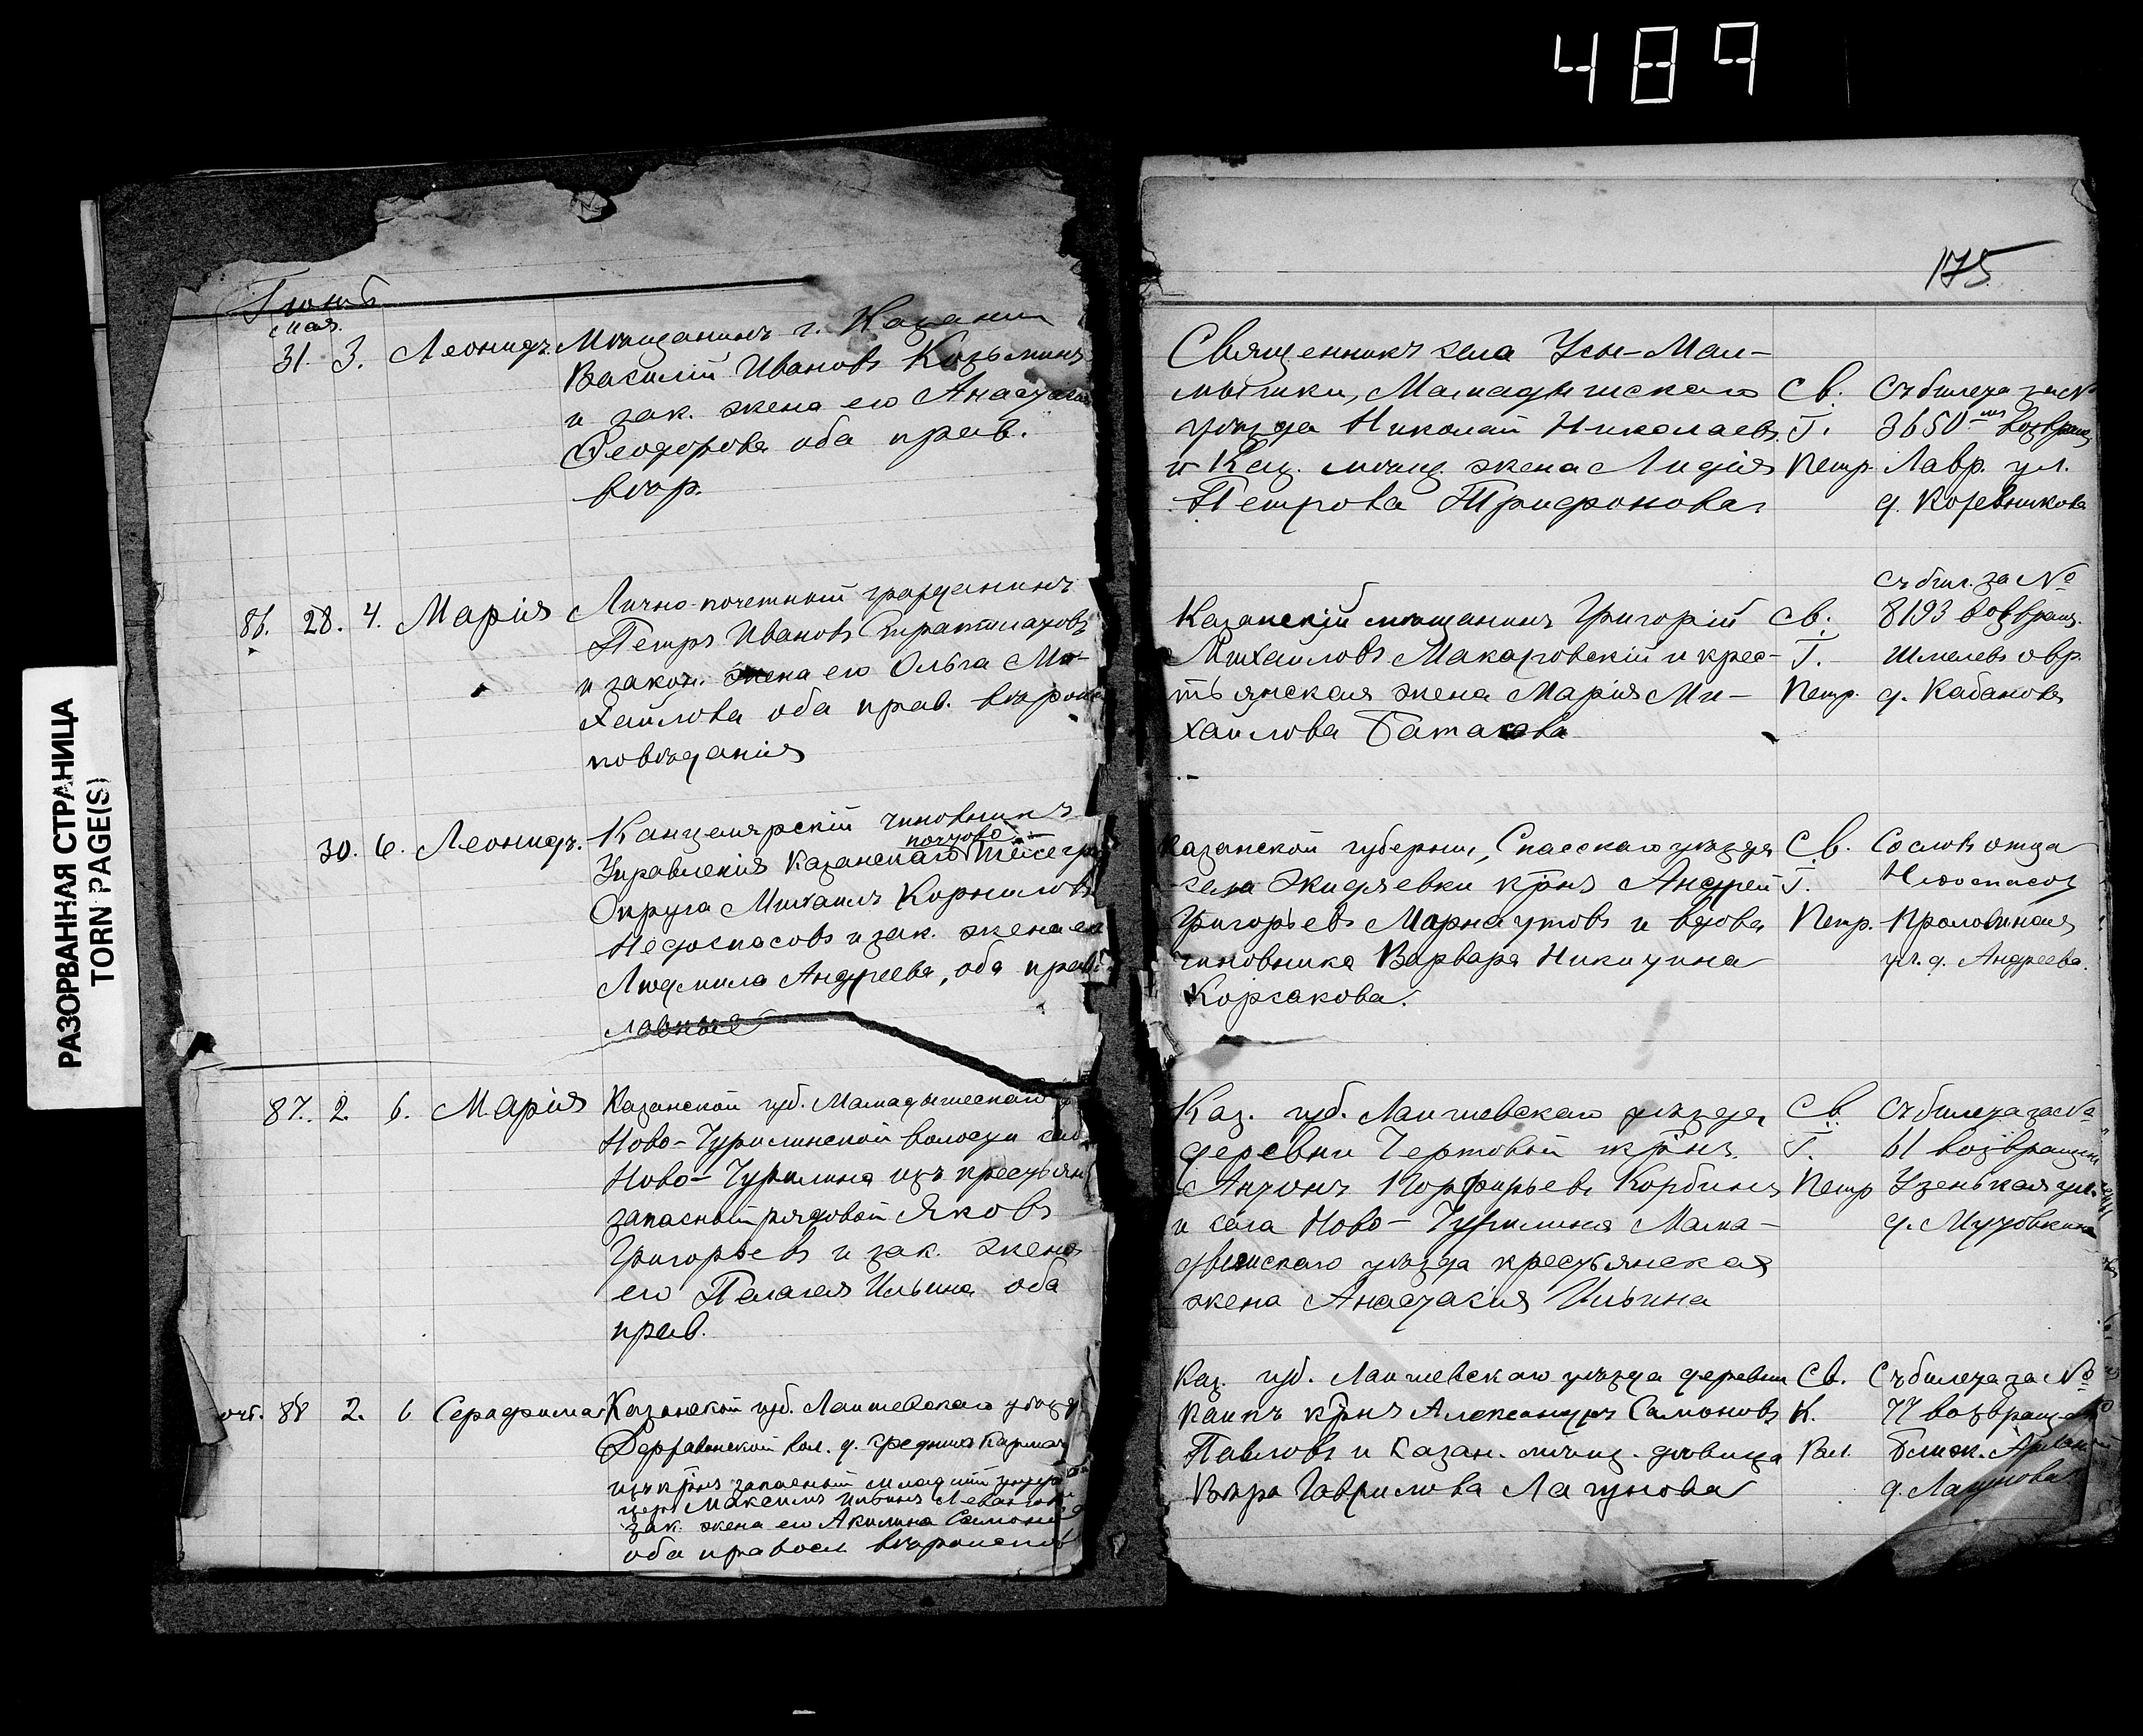 489
175
РАЗОРВАННАЯ СТРАНИЦА
TORN PAGE(S)
Іюнь
мая.
31. 3. Леонидъ. Мѣщанинъ г. Казани
Василій Ивановъ Козьминъ
и зак. жена его Анастасія
Ѳеодорова оба прав.
вѣр.
Священникъ села Усы-Мал-
мышки, Мамадышскаго
уѣзда Николай Николаевъ
и Каз. мѣщ. жена Лидія
Петрова Трифонова
Св.
Т.
Петр.
Съ билета за №
3650 возвращ
Лавр. ул.
д. Кожевникова
86. 28. 4. Марія Лично-почетный гражданинъ
Петръ Ивановъ Стратилатовъ
и закон. жена его Ольга Ми-
хайлова оба прав. вѣроис
повѣданія
Казанскій мѣщанинъ Григорій
Михайловъ Макаровскій и крес-
тьянская жена Марія Ми-
хайлова
Св.
Т.
Петр.
съ бил. за №
8193 возвращ.
Шмелевъ овр.
д. Кабановъ
30. 6. Леонидъ. Канцелярскій чиновникъ
почтово
Управленія Казанскаго Телегр
Округа Михаилъ Корниловъ
Недоспасовъ и зак. жена его
Людмила Андреева, оба прав
лавные
Казанской губерніи, Спасскаго уѣзда
села Жидяевки крнъ Андрей
Григорьевъ и вдова
чиновника Варвара Никитина
Корсакова.
Св.
Т.
Петр.
Со словъ отца
Недоспасов
Проломная
ул. д. Андреева.
87. 2. 6. Марія Казанской губ. Мамадышскаго у
Ново-Чурилинской волости
Ново-Чурилина изъ крестьян
запасный рядовой Яковъ
Григорьевъ и зак. жена
его Пелагея Ильина оба
прав.
Каз. губ. Лаишевскаго уѣзда,
деревни Чертовой крнъ
Антонъ Порфирьевъ Корбинъ
и села Ново-Чурилина Мама-
дышскаго уѣзда крестьянская
жена Анастасія Ильина
Св.
Т.
Петр
Съ билета за №
61 возвращен
Узенькая ул.
д.
88 2. 6 Серафима Казанской губ. Лаишевскаго уѣзд
Державинской вол. д. Средніе Кармач
изъ крнъ запасный младшій унтер
церъ Максимъ Ильинъ
зак. жена его Акилина Самсоно
оба правосл. вѣроиспов
Каз. губ. Лаишевскаго уѣзда деревни
крнъ Александръ Самоновъ
Павловъ и Казан. мѣщ. дѣвица
Вѣра Гаврилова Лагунова
Св.
К.
Вал.
Съ билета за №
77 возвращен
Ближ. Арской
д. Лагунова